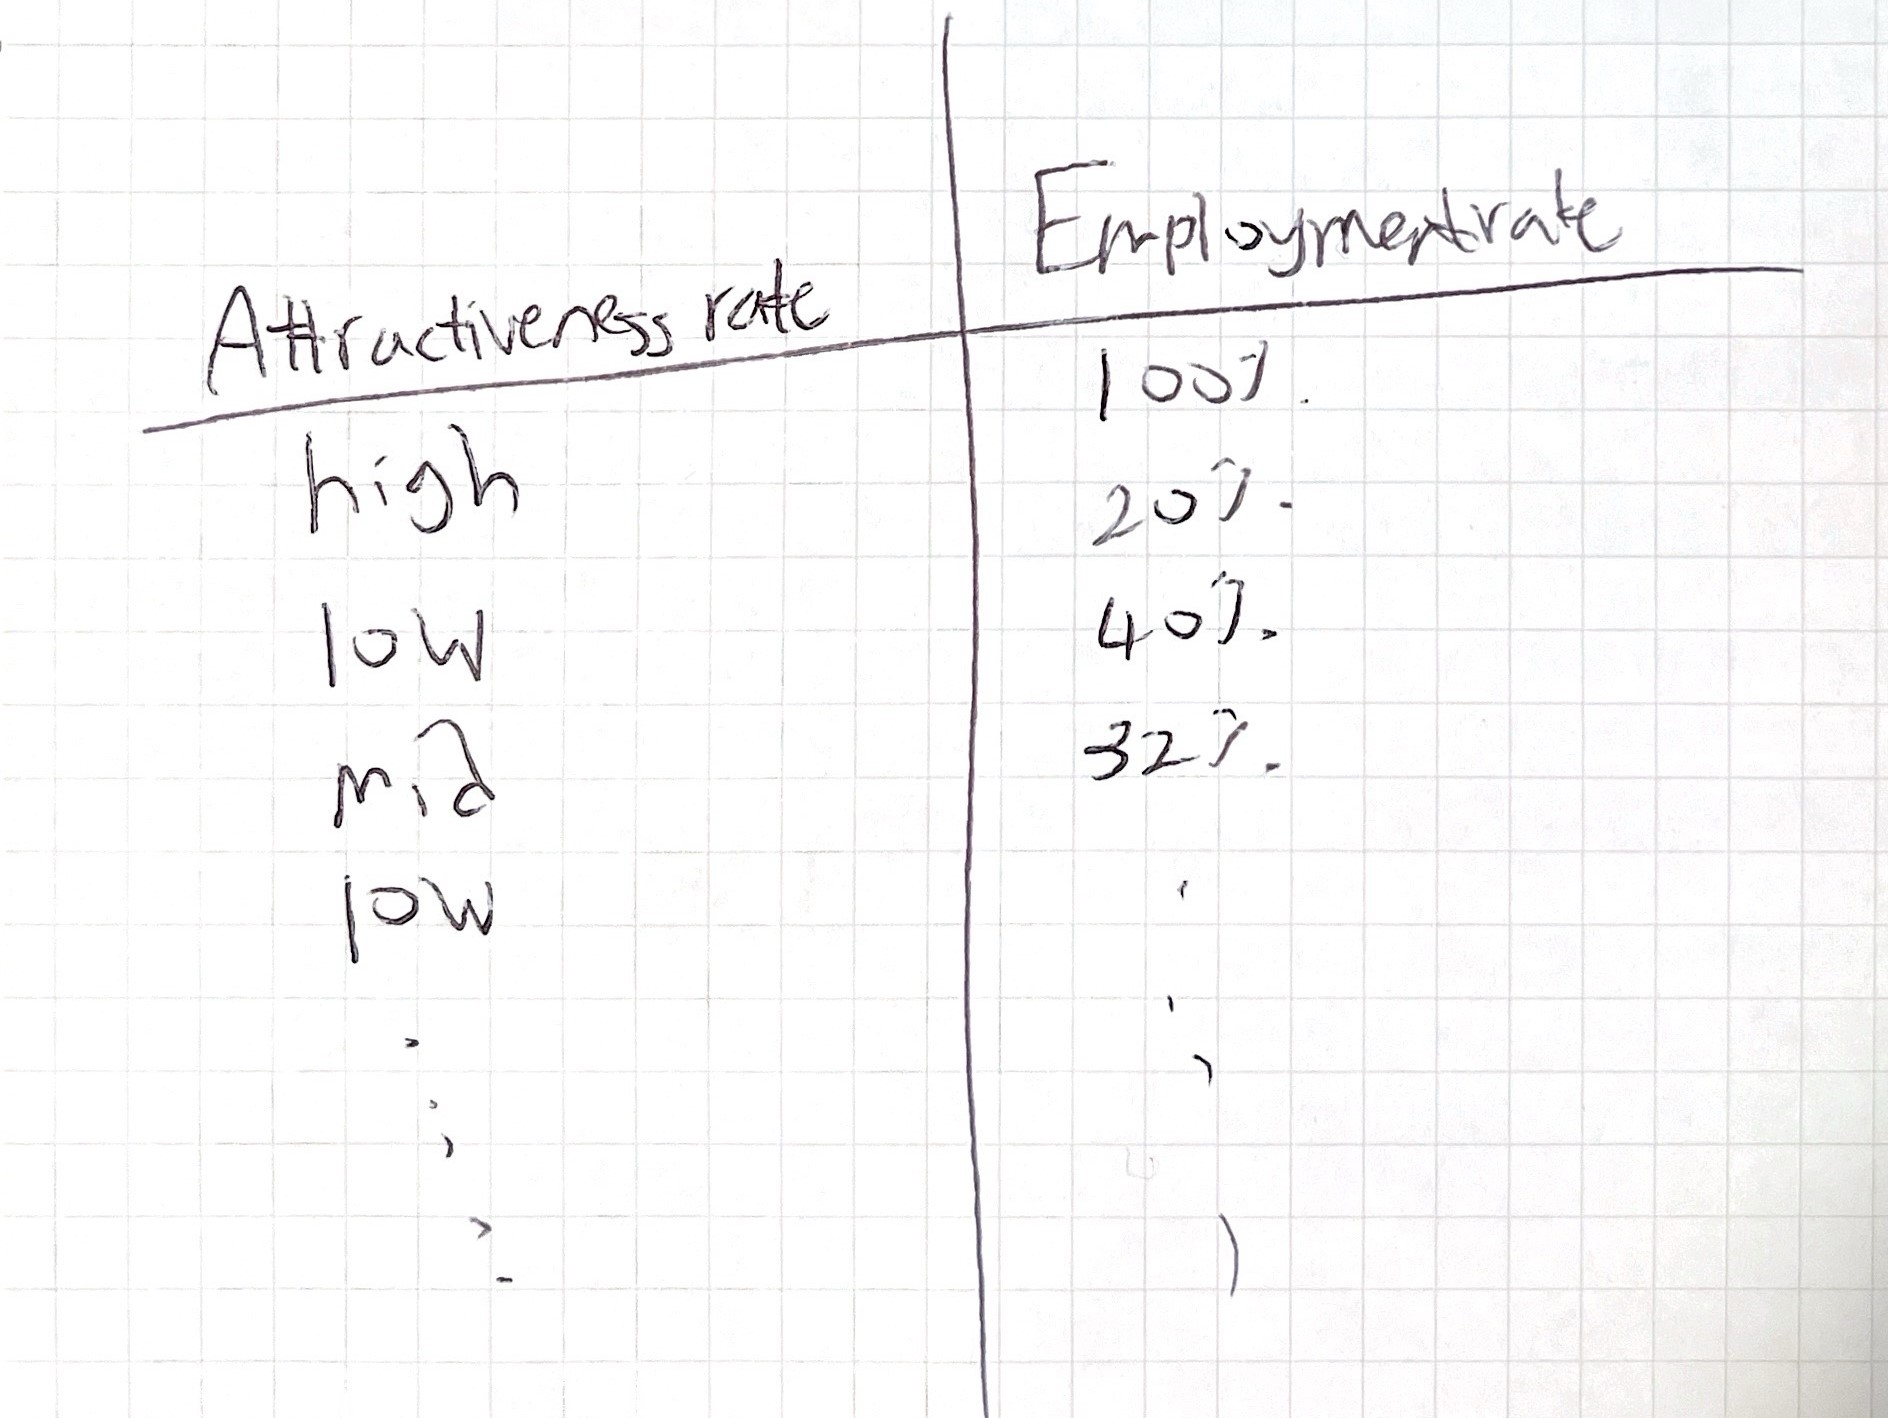 Attractiveness rate Employment rate
high 100%.
low 20%.
mid 40%.
low 32%.